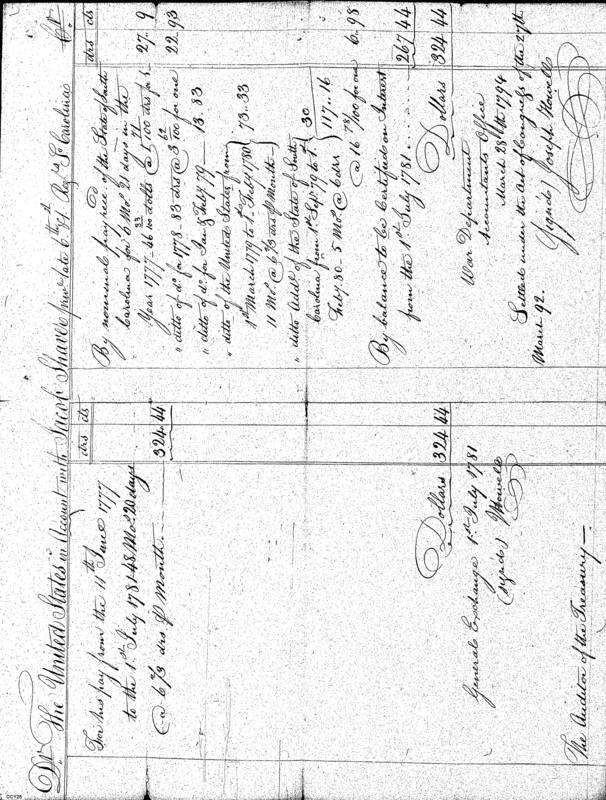 Dr. The United States in Account with Jacob Shaver priv. late 6th Regt. So. Carolina Cr.
drs cts
For his pay from the 11th June 1777
to the 1st July 1781 48 Mos. 20 days
@ 6 2/3 drs. p Month. 324.44
Dollars 324 44
General Exchange 1st July 1781
(signed) JHowell
The Auditor of the Treasury
drs cts
By nominal pay recd. of the State of South
Carolina for 6 Mos. 21 days in the
Year 1777 - 46 33/100 dolls @ 1 71/100 drs for 1 27. 9
" ditto of do. for 1778 83 drs @ 3 62/100 for one 22. 93
" ditto of do. for Jan. & Feby. 79 13. 83
" ditto of the United States from
1st March 1779 to 1st Feby. 1780
11 Mos. @ 6 2/3 drs p Month 73..33
" ditto Addl. of the State of South
Carolina from 1st Sept. 79 to 1st
Feby. 80 - 5 Mos. @ 6 drs 30
117..16
@ 16 78/100 for one 6. 98
By balance to be Certified on Interest
from the 1st July 1781 267 44
Dollars 324 44
War Department
Accountants Office
March 28th 1794
Settled under the Act of Congress of the 27th
March 92.
(signed) Joseph Howell
CCY28